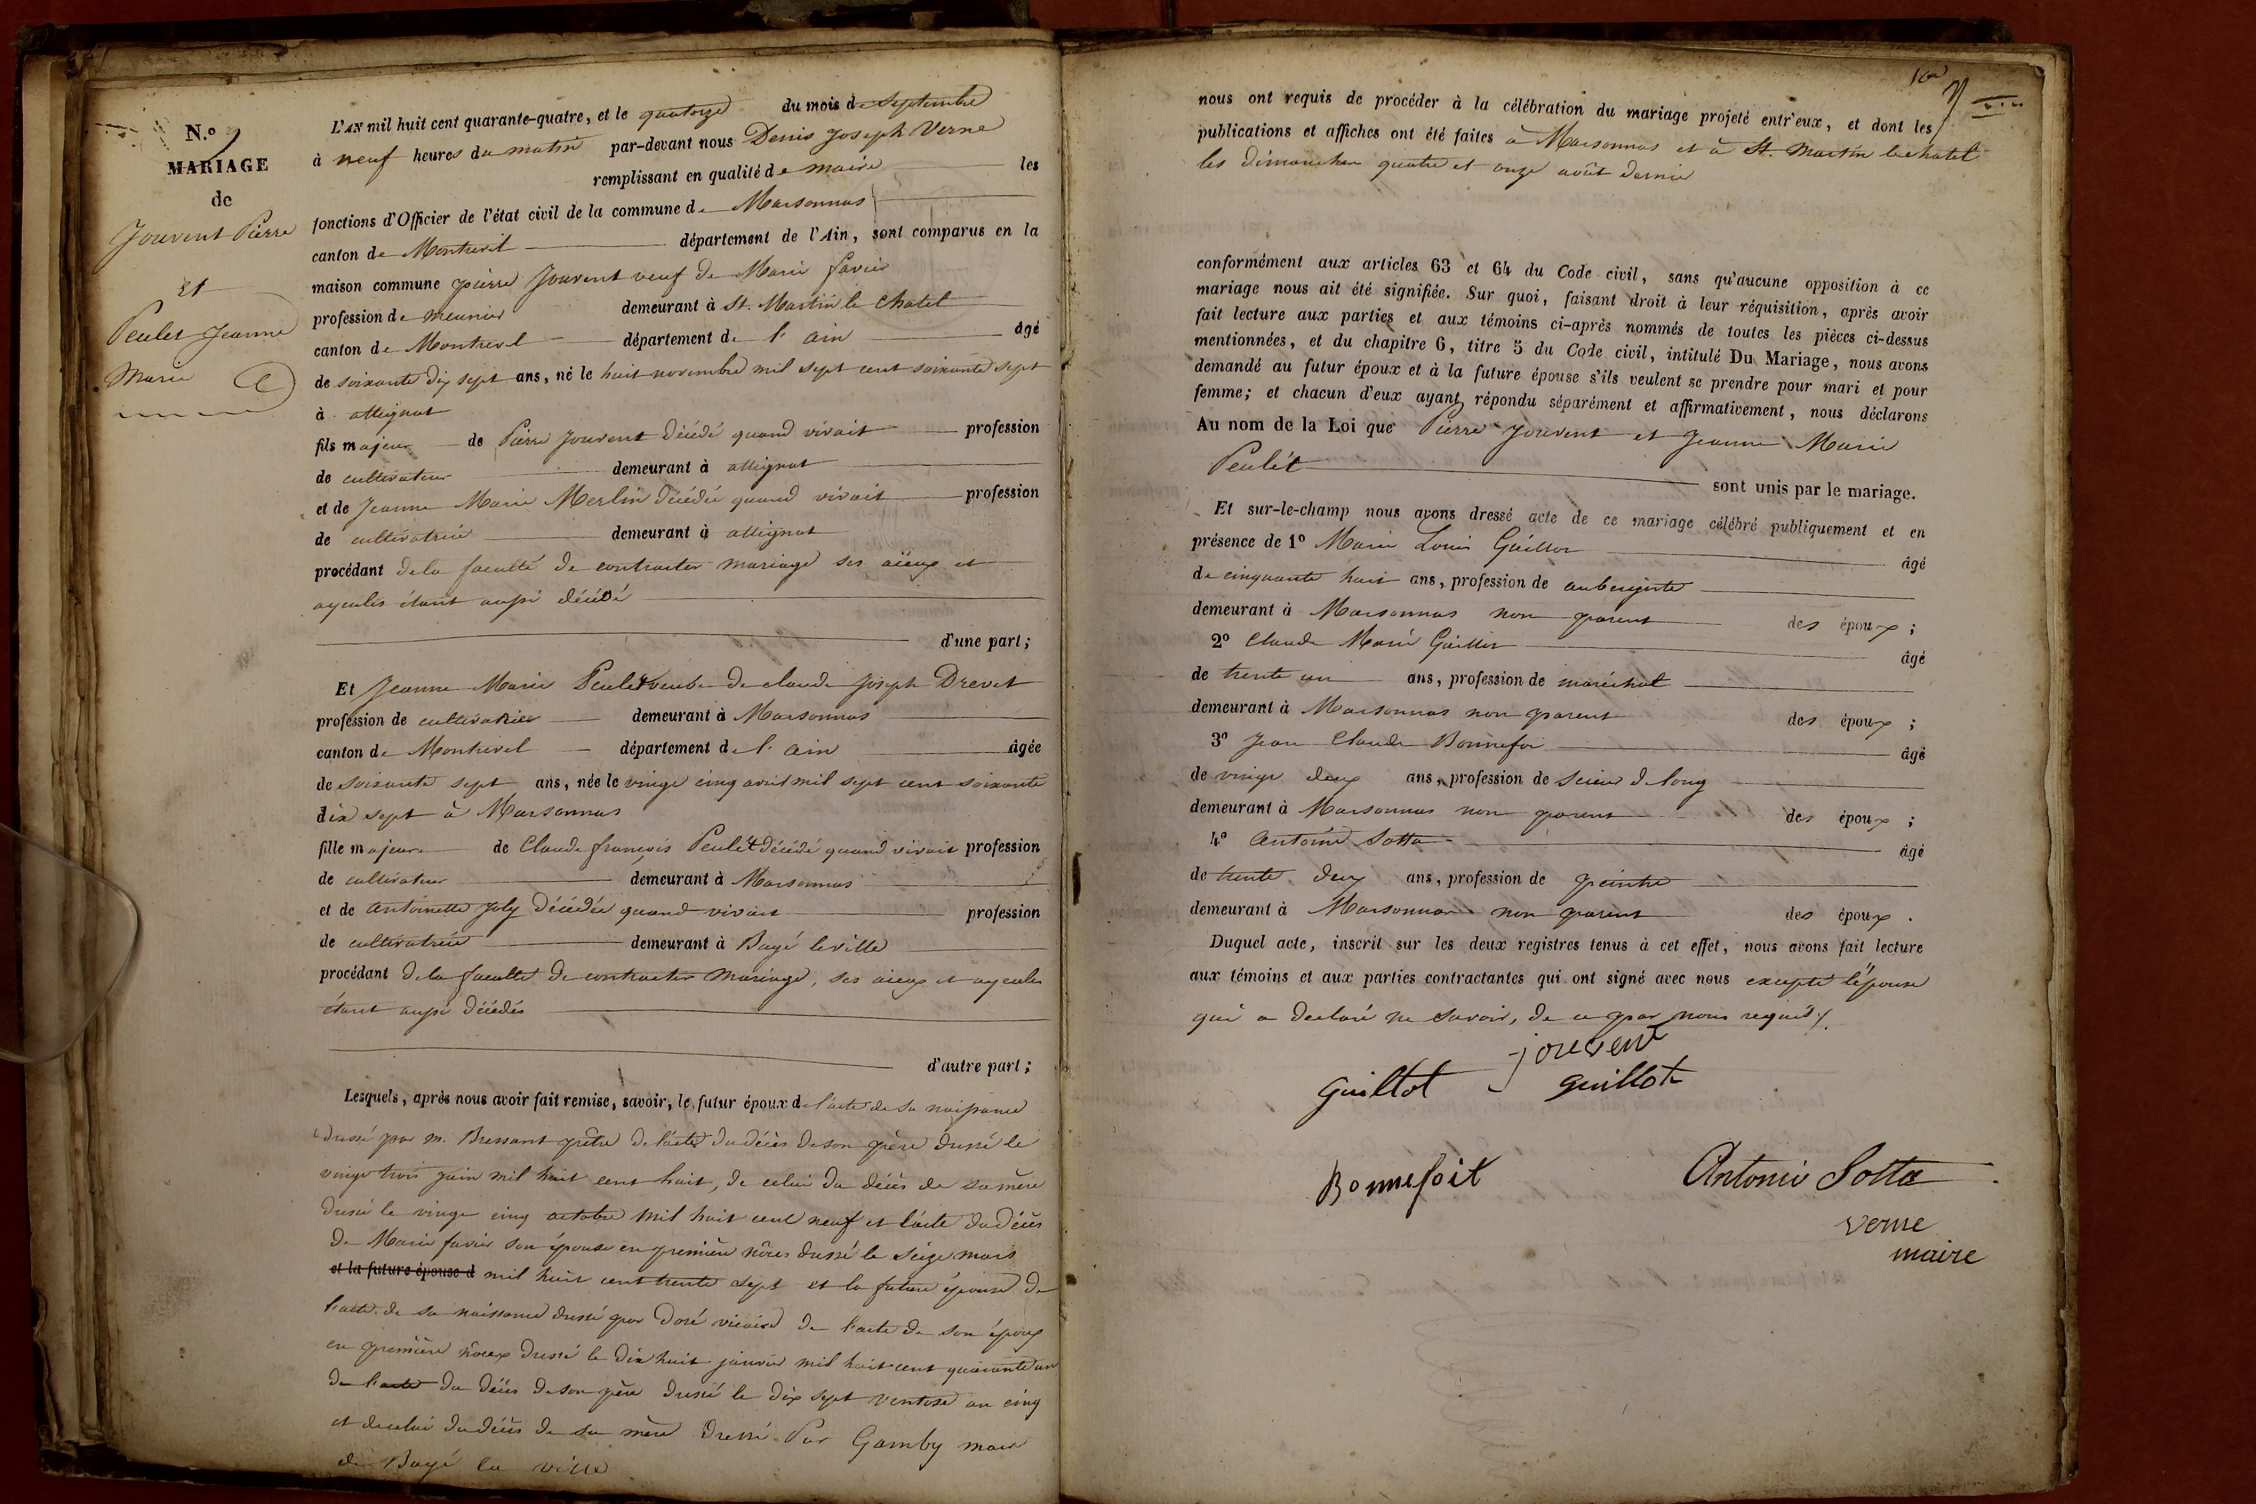 N.º 9
MARIAGE
de
Jouvent Pierre
et
Peulet Jeanne
Marie
L'AN mil huit cent quarante-quatre, et le quatorze du mois de Septembre
à neuf heures du matin par-devant nous Denis Joseph Verne
remplissant en qualité de maire les
fonctions d'Officier de l'état civil de la commune de Marsonnas
canton de Montrevel département de l'Ain, sont comparus en la
maison commune pierre Jouvent veuf de Marie favier
profession de meunier demeurant à St. Martin le Chatel
canton de Montrevel département de l'ain âgé
de soixante dix sept ans, né le huit novembre mil sept cent soixante sept
à attignat
fils majeur de Pierre Jouvent décédé quand vivait profession
de cultivateur demeurant à attignat
et de Jeanne Marie Merlin décédée quand vivait profession
de cultivatrice demeurant à attignat
procédant de la faculté de contracter mariage ses aïeux et
ayeules étant aussi décédé
d'une part;
Et Jeanne Marie Peulet veuve de claude Joseph Drevet
profession de cultivatrice demeurant à Marsonnas
canton de Montrevel département de l'ain âgée
de soixante sept ans, née le vingt cinq avril mil sept cent soixante
dix sept à Marsonnas
fille majeure de Claude françois Peulet décédé quand vivait profession
de cultivateur demeurant à Marsonnas
et de antoinette Joly décédée quand vivait profession
de cultivatrice demeurant à Bagé la ville
procédant de la faculté de contracter mariage, ses aieux et ayeules
étant aussi décédés
d'autre part;
Lesquels, après nous avoir fait remise, savoir, le futur époux de l'acte de sa naissance
dressé par m. Bressant prêtre de l'acte du décès de son père dressé le
vingt trois juin mil huit cent huit, de celui du décès de sa mère
dressé le vingt cinq octobre mil huit cent neuf et l'acte du décès
de Marie favier son épouse en première nôces dressé le seize mars
et la future épouse d mil huit cent trente sept et la future épouse de
l'acte de sa naissance dressé par Doré vicaire de l'acte de son époux
en première nôces dressé le dix huit janvier mil huit cent quarante un
de l'acte du décès de son père dressé le dix sept ventose an cinq
et de celui du décès de sa mère dressé Par Gamby maire
de Bagé la ville
nous ont requis de procéder à la célébration du mariage projeté entr'eux, et dont les
publications et affiches ont été faites à Marsonnas et à St. Martin le chatel
les dimanches quatre et onze août dernier
conformément aux articles 63 et 64 du Code civil, sans qu'aucune opposition à ce
mariage nous ait été signifiée. Sur quoi, faisant droit à leur réquisition, après avoir
fait lecture aux parties et aux témoins ci-après nommés de toutes les pièces ci-dessus
mentionnées, et du chapitre 6, titre 5 du Code civil, intitulé Du Mariage, nous avons
demandé au futur époux et à la future épouse s'ils veulent se prendre pour mari et pour
femme; et chacun d'eux ayant répondu séparément et affirmativement, nous déclarons
Au nom de la Loi que Pierre Jouvent et Jeanne Marie
Peulet sont unis par le mariage.
Et sur-le-champ nous avons dressé acte de ce mariage célébré publiquement et en
présence de 1º Marie Louis Guillot âgé
de cinquante huit ans, profession de aubergiste
demeurant à Marsonnas non parent des époux;
2º Claude Marie Guillot âgé
de trente un ans, profession de maréchal
demeurant à Marsonnas non parent des époux;
3º Jean Claude Bonnefoi âgé
de vingt deux ans, profession de scieur de long
demeurant à Marsonnas non parent des époux;
4º antoine Sotta âgé
de trente deux ans, profession de peintre
demeurant à Marsonnas non parent des époux.
Duquel acte, inscrit sur les deux registres tenus à cet effet, nous avons fait lecture
aux témoins et aux parties contractantes qui ont signé avec nous excepté l'épouse
qui a déclaré ne savoir, de ce par nous requis
jouvent
guillot guillot
Bonnefoit Antonio Sotta
verne
maire